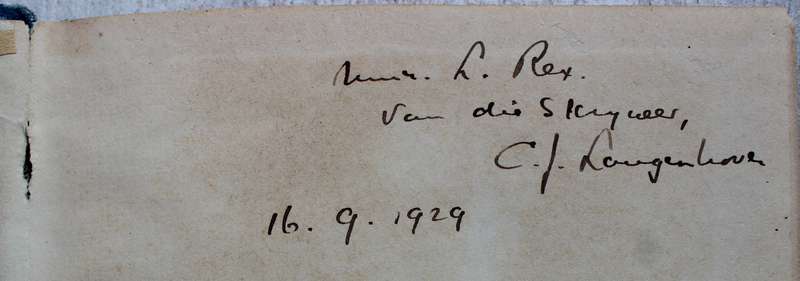 Mnr. L. Rex.
van die Skrywer,
C. J. Langenhoven
16. 9. 1929